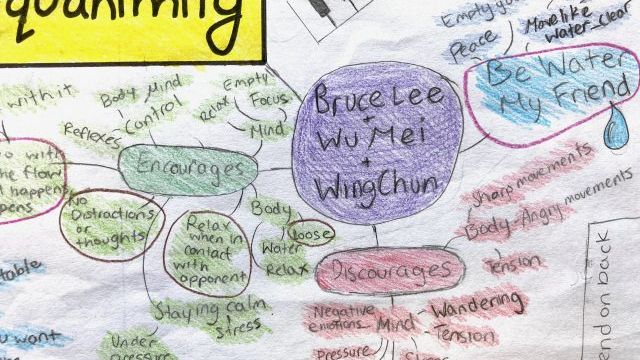 quanimity
Empty
Peace
Move like
Water_clear
Be Water
My Friend
Bruce Lee
+
Wu Mei
+
Wing Chun
with it
Body Mind
Control
Reflexes
Empty
Relax Focus
Mind
Encourages
o with
the flow
happens
pens
No
Distractions
or
thoughts
Relax
when in
contact
with
opponent
Body
loose
Water
Relax
Staying calm
Stress
Under
pressure
Discourages
Sharp movements
Body-Angry movements
Tension
Negative
emotions
Mind
Wandering
Tension
Pressure
table
u want
nd on back